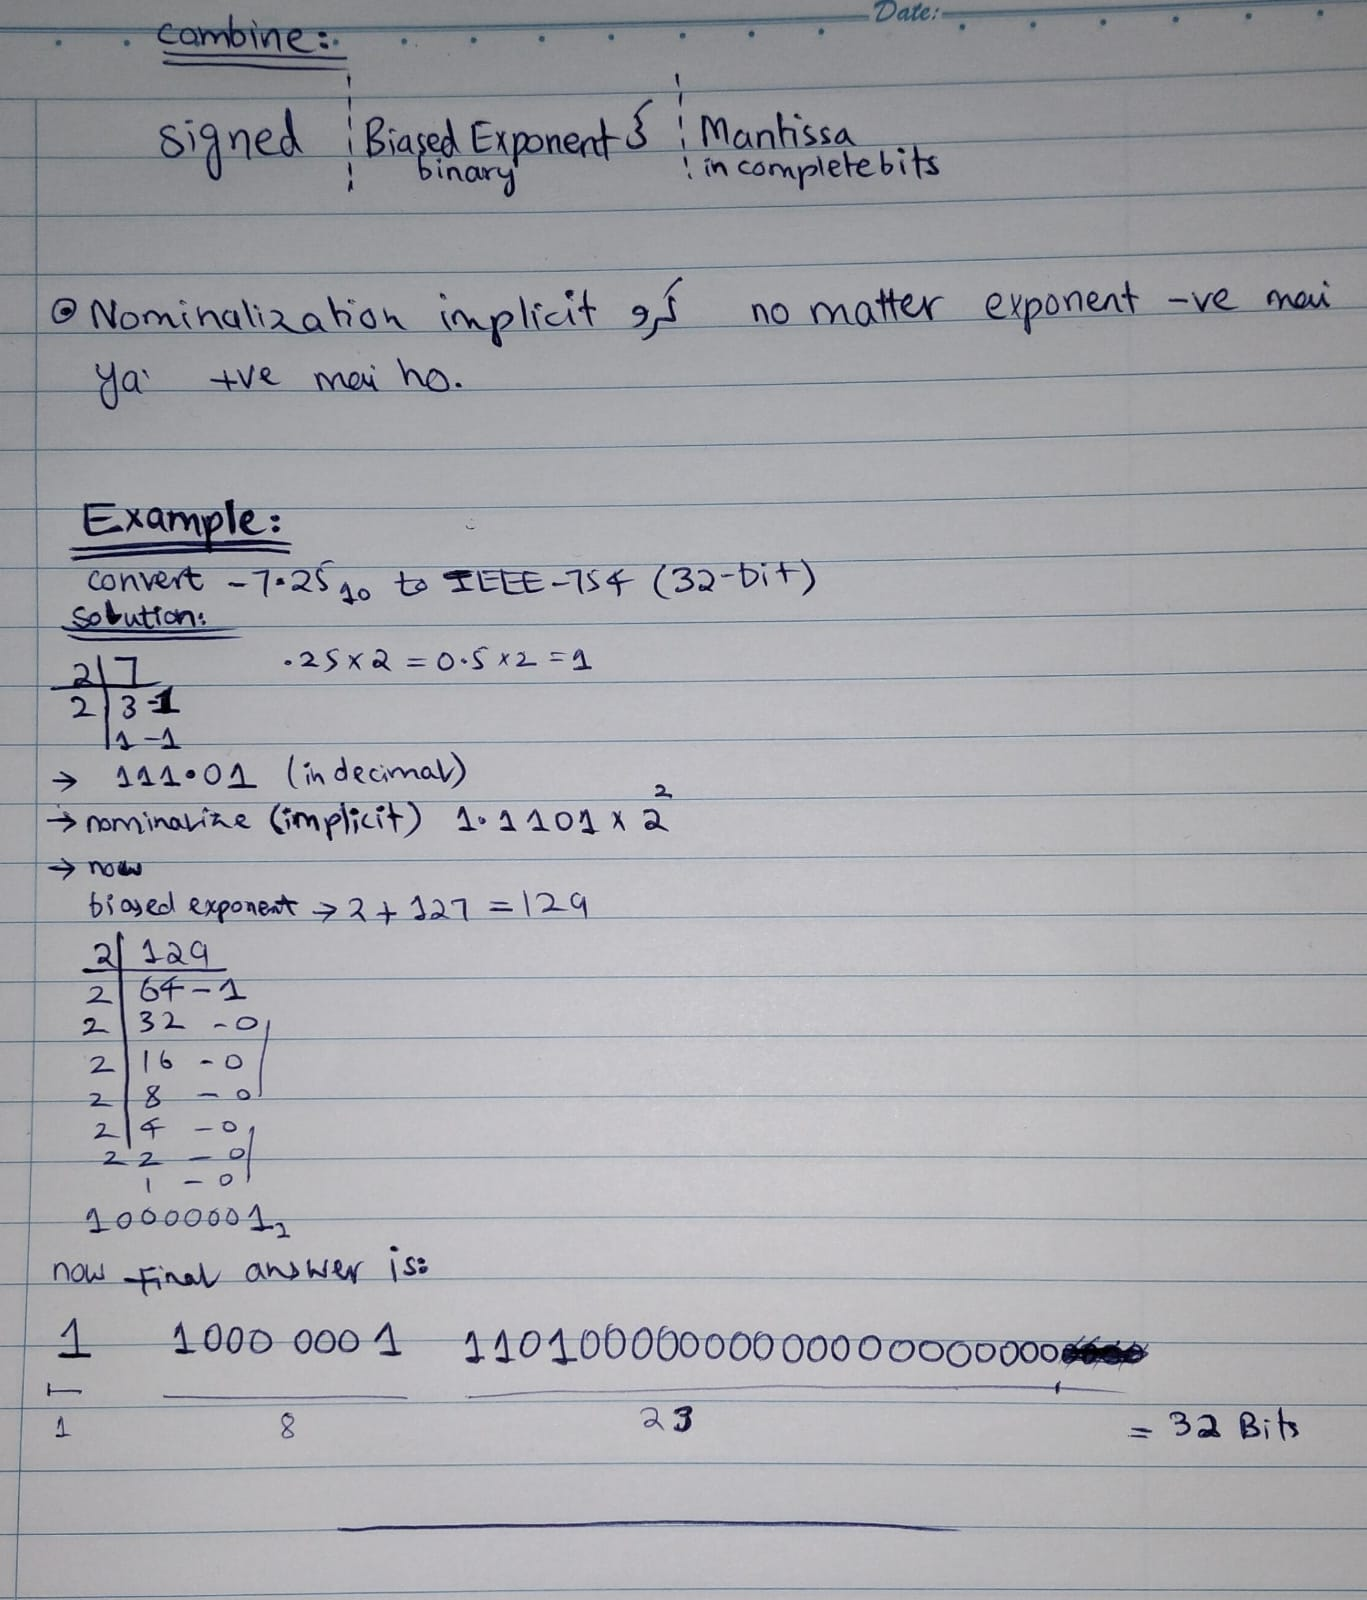 Date:
combine:
signed Biased Exponent & Mantissa
binary in complete bits
Nominalization implicit کرو no matter exponent -ve mai
ya +ve mai ho.
Example:
convert -7.25₁₀ to IEEE-754 (32-bit)
Solution:
2 7 .25 x 2 = 0.5 x 2 = 1
2 3 -1
1 -1
→ 111.01 (in decimal)
→ nominalize (implicit) 1.1101 x 2²
→ now
biased exponent → 2 + 127 = 129
2 129
2 64 - 1
2 32 - 0
2 16 - 0
2 8 - 0
2 4 - 0
2 2 - 0
1 - 0
10000001₂
now final answer is:
1 1000 0001 11010000000000000000000
1 8 23 = 32 Bits